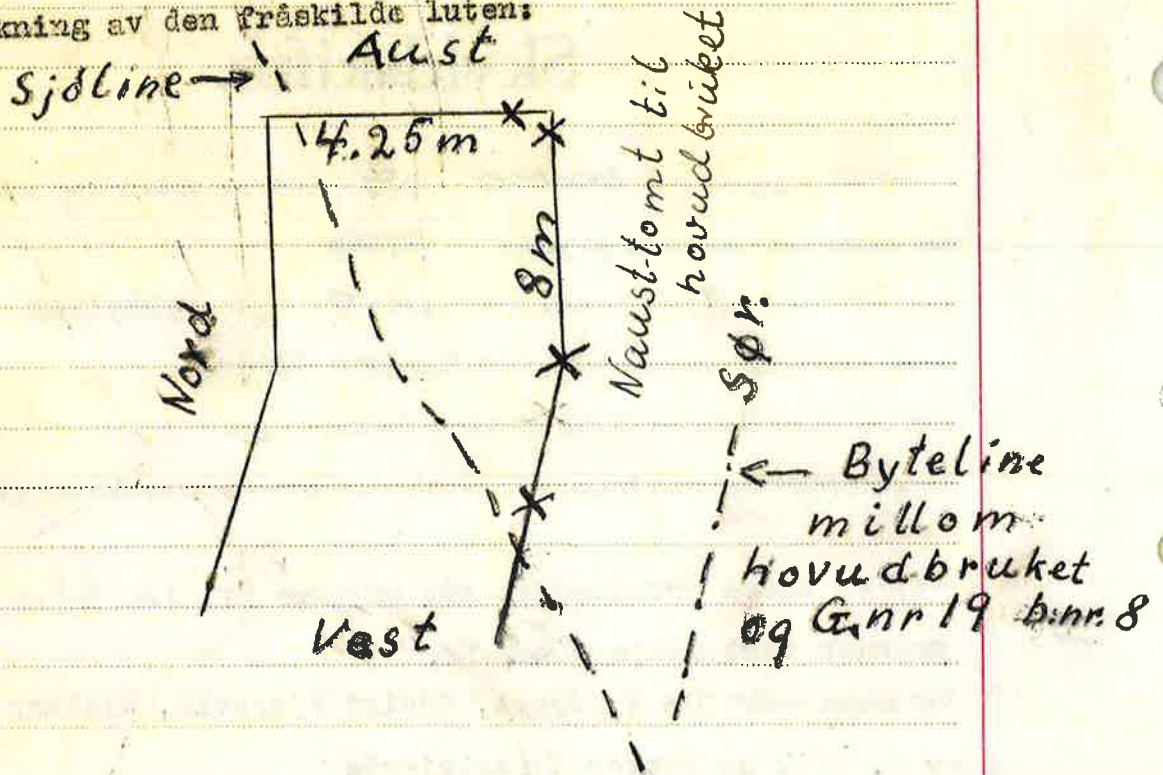 kning av den fråskilde luten:
Aust
Sjöline
4.25 m
8m
Nord
Naust-tomt til
hovudbruket
Sør.
Byteline
millom
hovudbruket
og G.nr 19 b.nr. 8
Vest